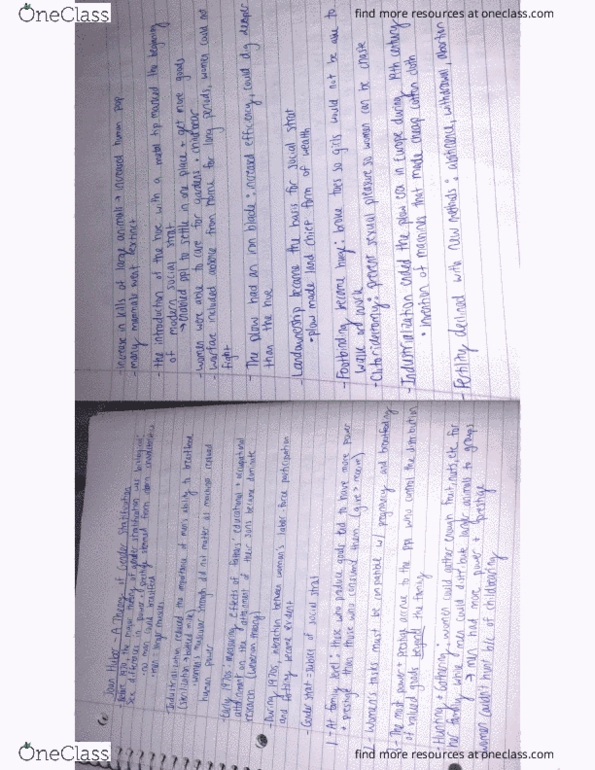 OneClass
find more resources at oneclass.com
Joan Huber - A Theory of Gender Stratification
- Before 1970, the major theory of gender stratification was biological:
sex differences in power + prestige stemmed from inborn characteristics
- no man could breastfeed
- men = larger muscles
- Industrialization reduced the importance of women's ability to breastfeed
(sterilization → bottled milk)
men's muscular strength did not matter as machines replaced
human power
- early 1970s: measuring effects of fathers' educational + occupational
attainment on the attainment of their sons became dominate
research
- During 1970s, interaction between women's labor force participation
and fertility became evident
- Gender strat = subset of social strat
1. At family level: those who produce goods tend to have more power
+ prestige than those who consume them (give > receive)
2. Women's tasks must be compatible w/ pregnancy and breastfeeding
3. The most power + prestige accrue to the ppl who control the distribution
of valued goods beyond the family
- Hunting + Gathering: women could gather enough fruit, nuts, etc. for
her family while men could distribute large animals to groups
→ men had more power + prestige
women couldn't hunt b/c of childbearing
- increase in kills of large animals → increased human pop
- many mammals went extinct
- the introduction of the hoe with a metal tip marked the beginning
of modern social strat
→ enabled ppl to settle in one place + get more goods
- women were able to care for gardens + childbear
- warfare included absence from home for long periods, women could not
fight
- The plow had an iron blade: increased efficiency, could dig deeper
than the hoe
- Landownership became the basis for social strat
• plow made land chief form of wealth
- Footbinding became huge: broke toes so girls would not be able to
walk or work
- Clitoridectomy: prevent sexual pleasure so women can be chaste
- Industrialization ended the plow era in Europe during 19th century
• invention of machines that made cheap cotton cloth
- Fertility declined with new methods: abstinence, withdrawal, abortion
OneClass
find more resources at oneclass.com